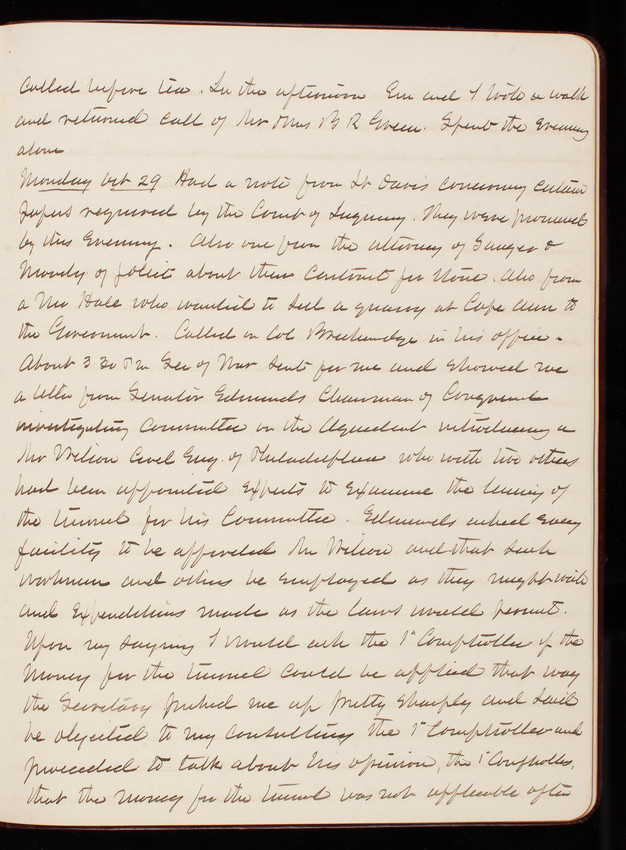 called before tea. In the afternoon Em and I took a walk
and returned call of Mr & Mrs B R Green. Spent the evening
alone
Monday Oct 29 Had a note from Lt Davis concerning certain
papers required by the Court of Inquiry. They were promised
by this Evening. Also one from the attorney of Sanger &
Moody of Joliet about their Contract for stone. Also from
a Mr Hale who wanted to sell a quarry at Cape Ann to
the Government. Called on Col Breckenridge in his office.
About 3 30 P M Sec of War sent for me and showed me
a letter from Senator Edmunds Chairman of Congressl
investigating Committee on the Aqueduct introducing a
Mr Wilson Civil Eng. of Philadelphia who with two others
had been appointed experts to examine the lining of
the tunnel for his Committee. Edmunds asked every
facility to be afforded Mr Wilson and that such
workmen and others be employed as they might wish
and expenditures made as the laws would permit.
Upon my saying I would ask the 1st Comptroller if the
money for the tunnel could be applied that way
the Secretary picked me up pretty sharply and said
he objected to my consulting the 1st Comptroller and
proceeded to talk about his opinion, the 1st Comptroller,
that the money for the tunnel was not applicable after